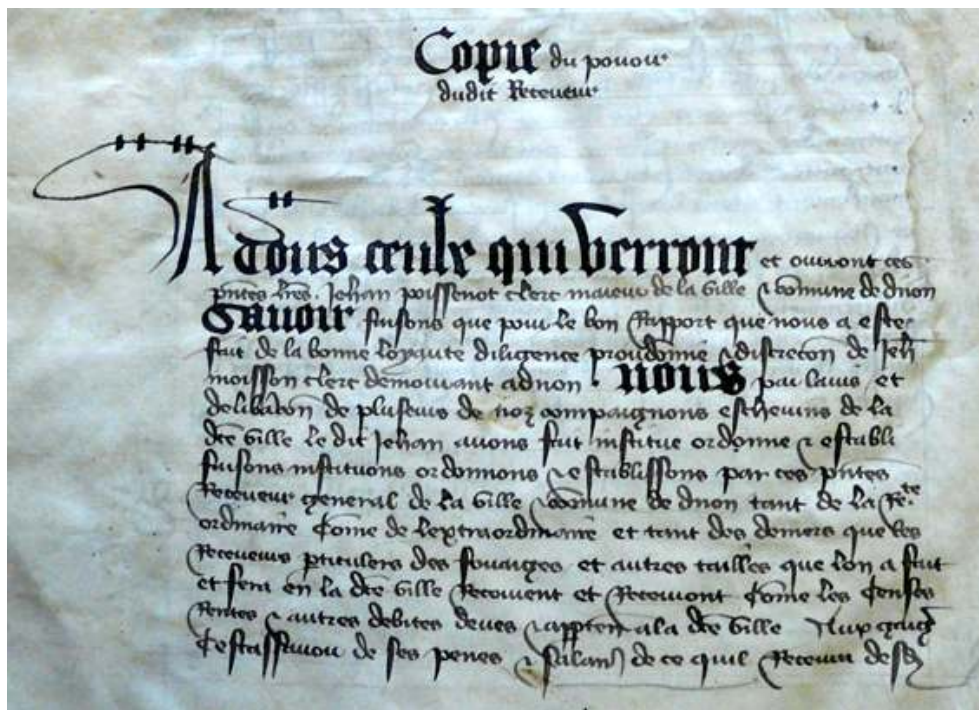 Copie du povoir
dudit Receveur
A tous ceulx qui verront et ouiront ces
pntes lres. Jehan poissenot clerc maieur de la ville & commune de diion
savoir faisons que pour le bon Rapport que nous a este
fait de la bonne loyaute diligence proudomie & discrecon de Jeh
moisson clerc demourant a diion. nous par lavis et
delibacon de plusieurs de noz compaignons eschevins de la
dce ville le dit Jehan avons fait institue ordonne & establi
faisons instituons ordonnons & establissons par ces pntes
Receveur general de la ville & commune de diion tant de la Rte
ordinaire come de lextraordinaire et tant des deniers que les
Receveurs pticulers des fouaiges et autres tailles que lon a fait
et fera en la dce ville Recoivent et Recevront come les censes
Rentes & autres debites deues & appten a la dce ville Aux gaig
Cestassavoir de ses penes & salar de ce quil Recevra